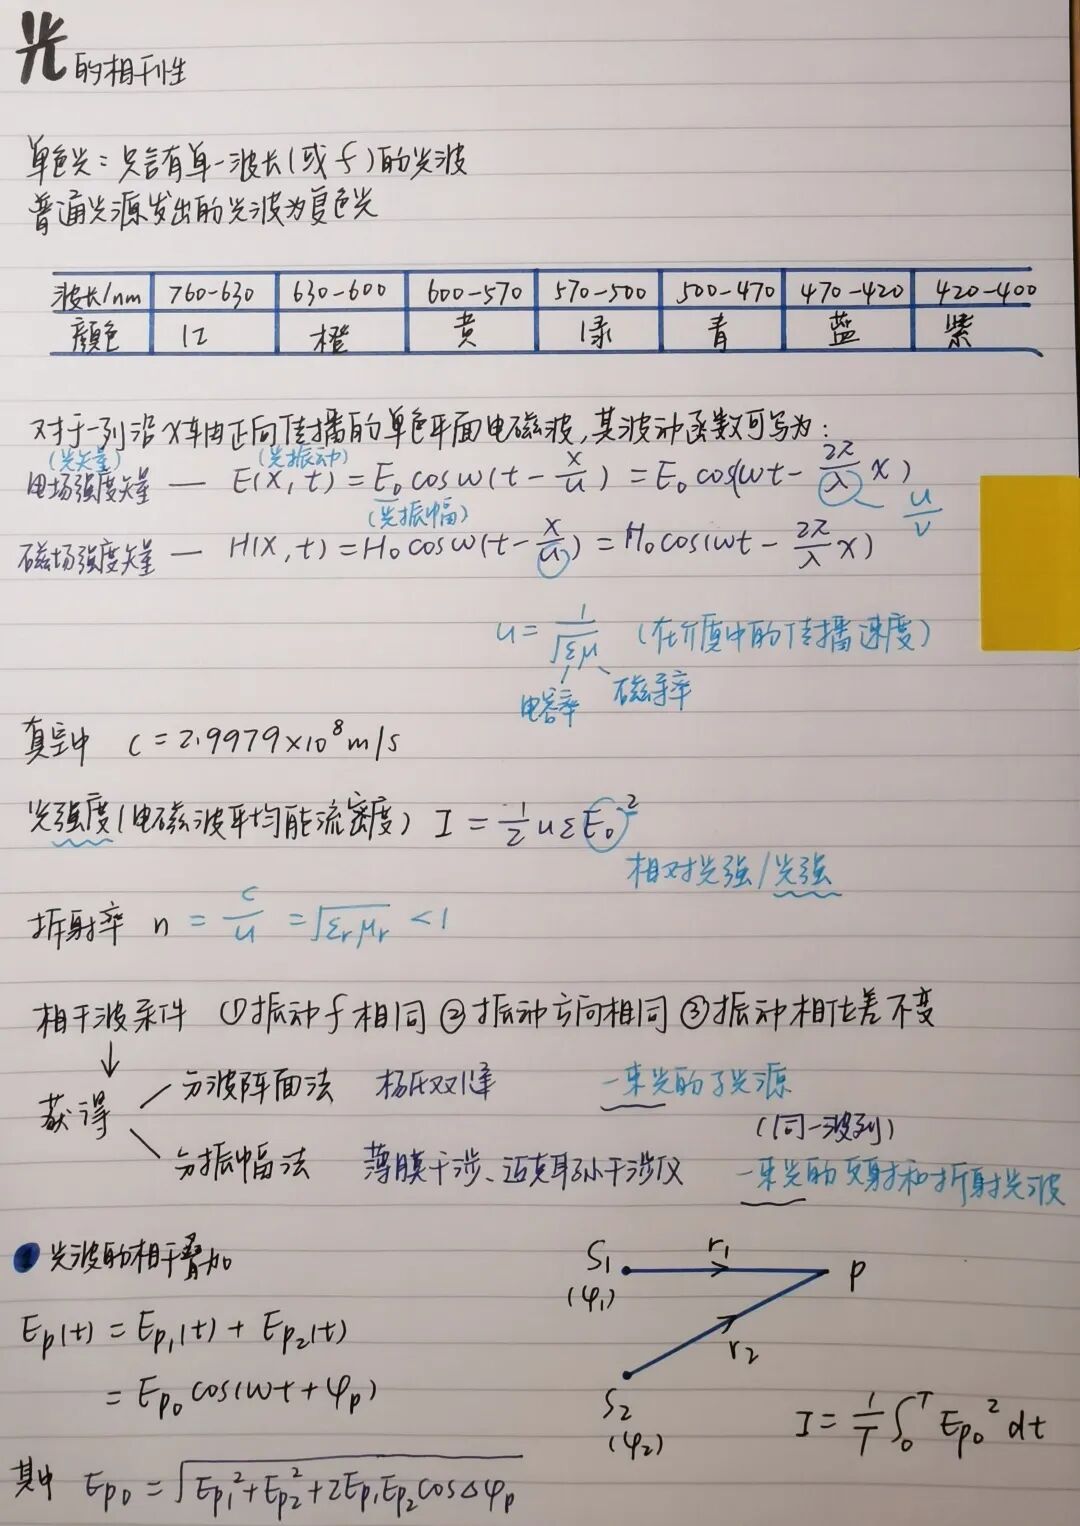 光的相干性
单色光：只含有单一波长(或f)的光波
普通光源发出的光波为复色光
波长/nm 760-630 630-600 600-570 570-500 500-470 470-420 420-400
颜色 红 橙 黄 绿 青 蓝 紫
对于一列沿X轴正向传播的单色平面电磁波,其波动函数可写为:
(光矢量) (光振动)
电场强度矢量 — E(X,t) = E₀ cos ω(t - x/u) = E₀ cos(ωt - 2π/λ x)
(光振幅) u/ν
磁场强度矢量 — H(X,t) = H₀ cos ω(t - x/u) = H₀ cos(ωt - 2π/λ x)
u = 1/√εμ (在介质中的传播速度)
电容率 磁导率
真空中 c = 2.9979×10⁸m/s
光强度(电磁波平均能流密度) I = 1/2 uεE₀²
相对光强/光强
折射率 n = c/u = √εᵣμᵣ < 1
相干波条件 ①振动f相同 ②振动方向相同 ③振动相位差不变
↓
获得
分波阵面法 杨氏双缝 一束光的子光源
(同一波列)
分振幅法 薄膜干涉、迈克耳孙干涉仪 一束光的反射和折射光波
1 光波的相干叠加
S₁ r₁ P
(φ₁)
Ep(t) = Ep₁(t) + Ep₂(t)
r₂
= Ep₀ cos(ωt + φp)
S₂
(φ₂)
I = 1/T ∫₀ᵀ Ep₀² dt
其中 Ep₀ = √Ep₁² + Ep₂² + 2Ep₁Ep₂cosΔφp